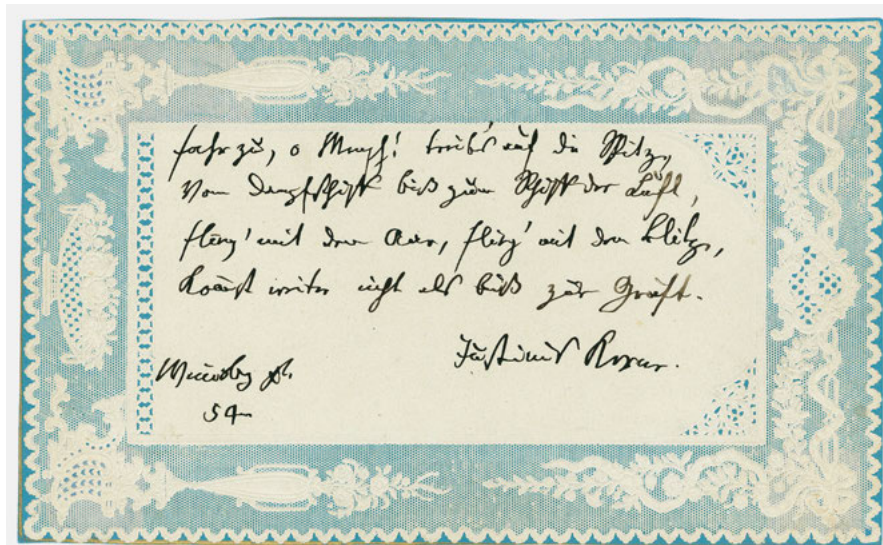 Fahr zu, o Mensch! treib's auf die Spitze,
Vom Dampfschiff bis zum Schiff der Luft,
Flieg' mit dem Aar, flieg' mit dem Blitze,
Kommst weiter nicht als bis zur Gruft.
Justinus Kerner.
Weinsberg
54